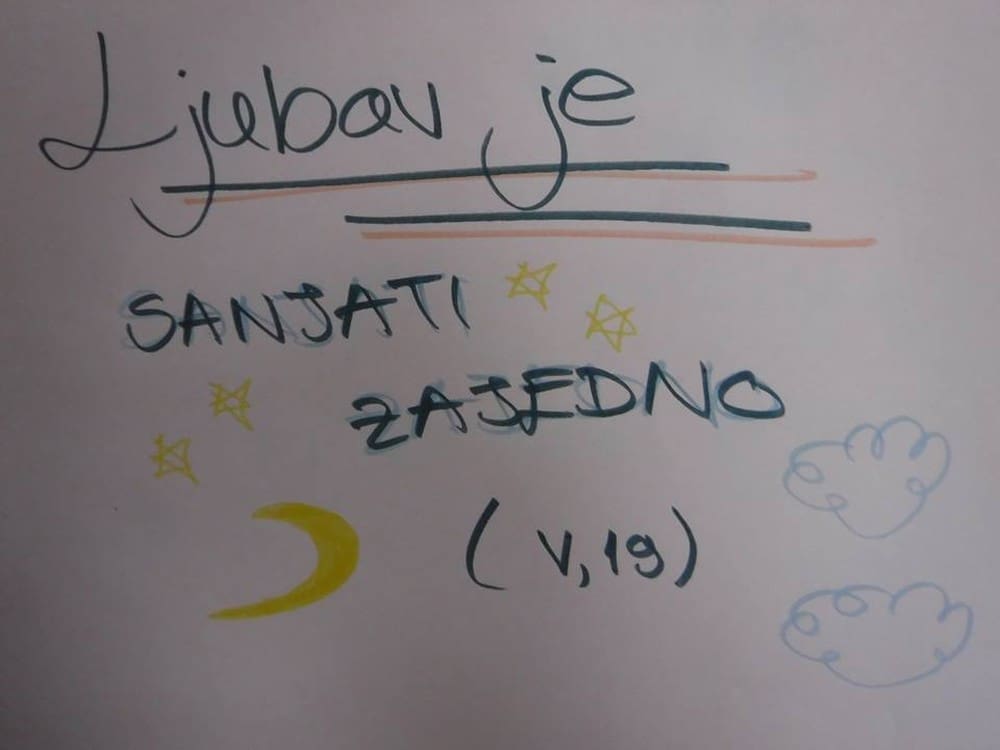 Ljubav je
SANJATI
ZAJEDNO
(V, 19)